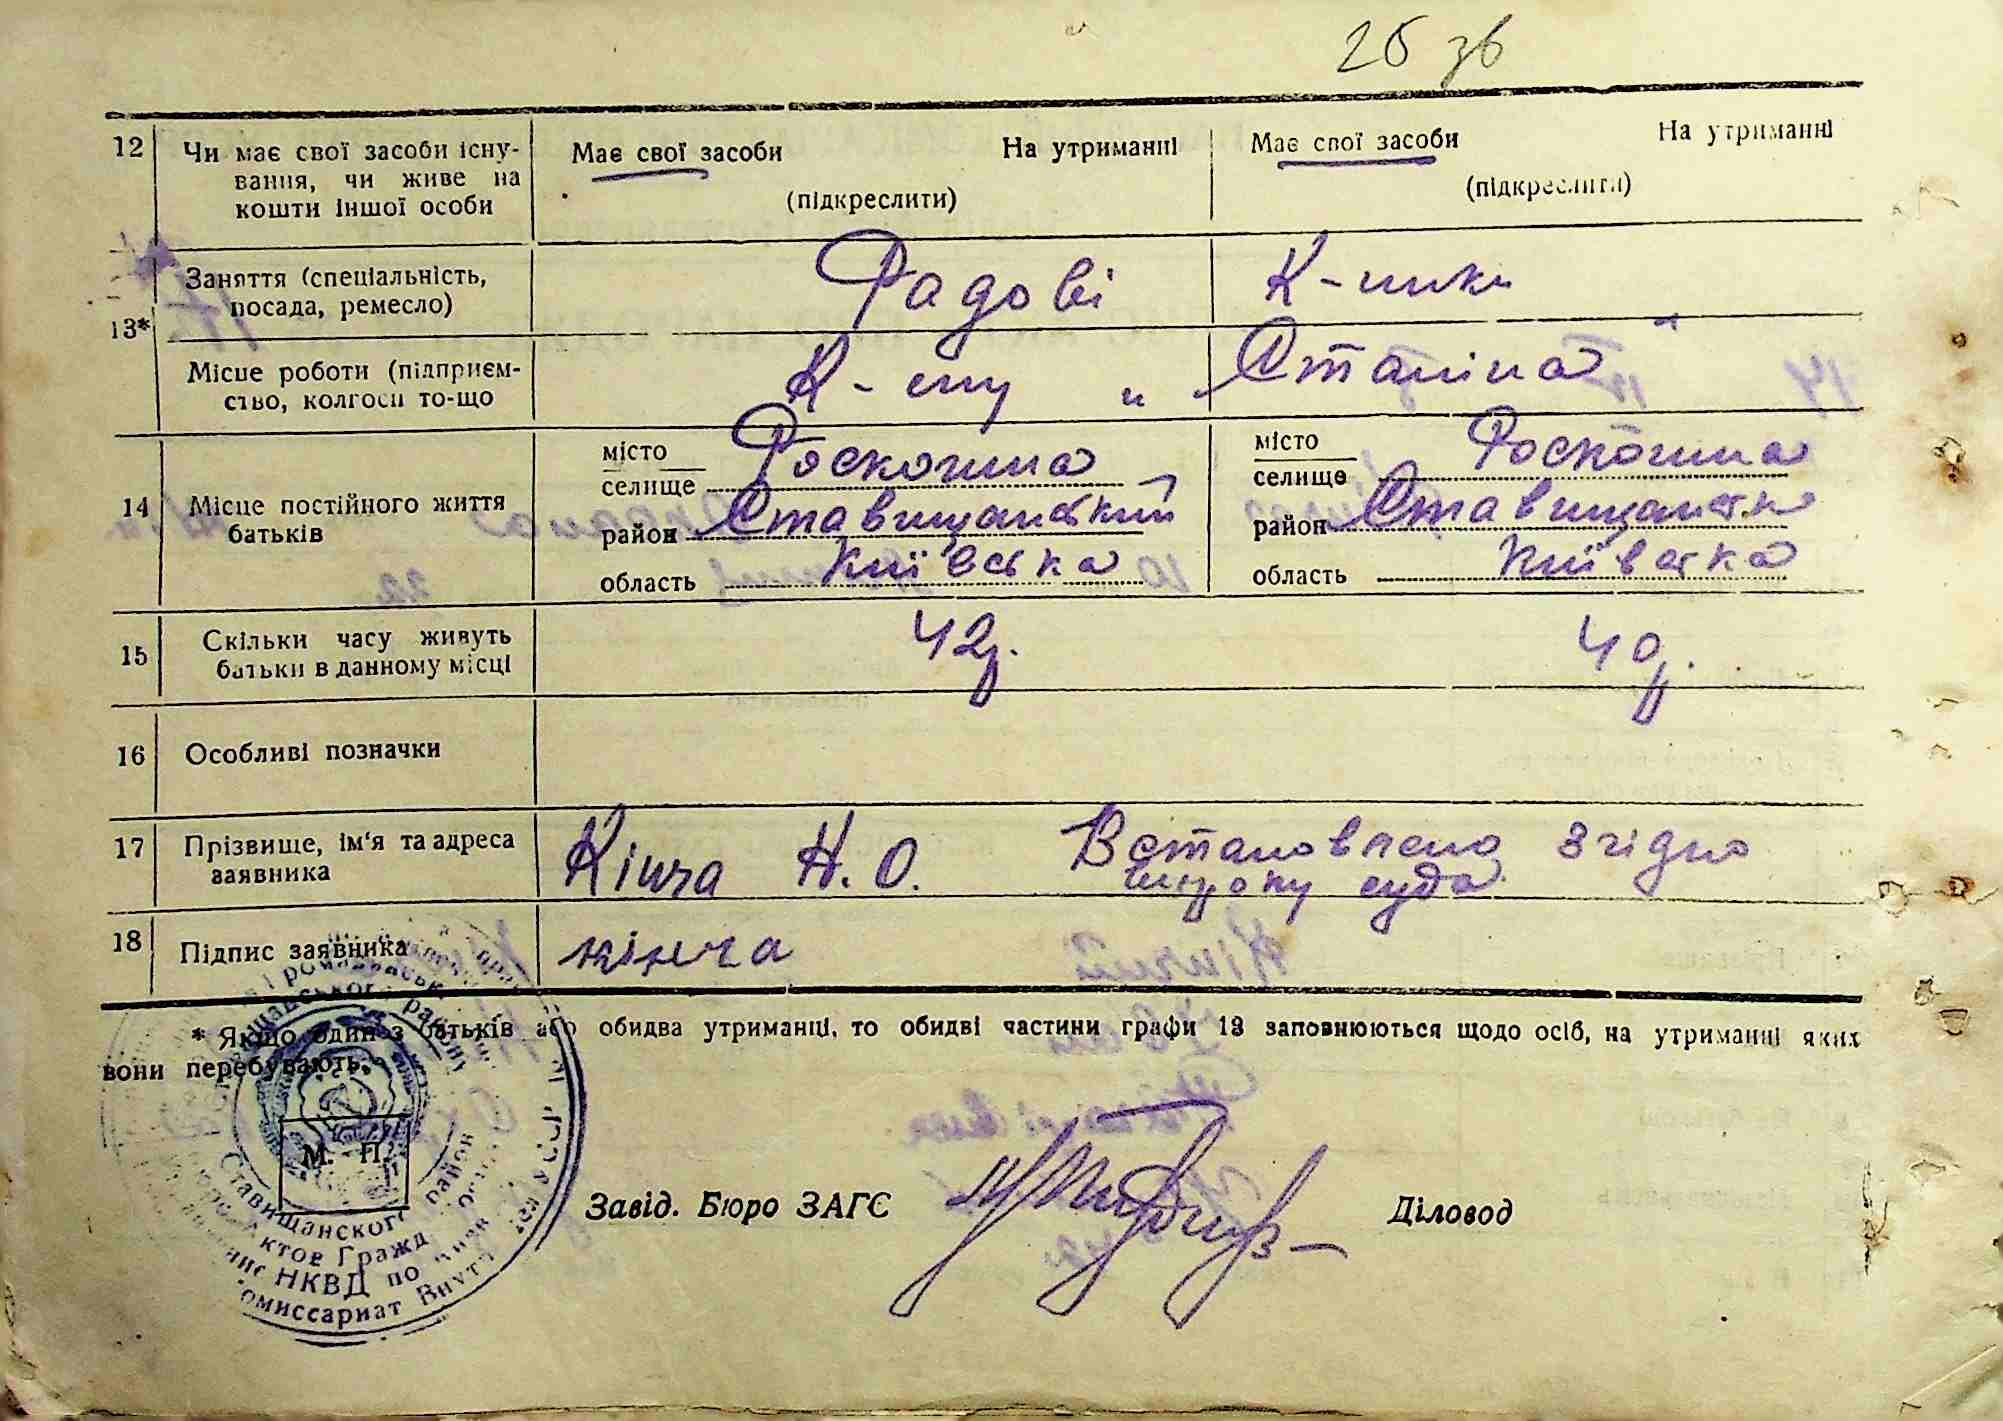 26 зв
12 Чи має свої засоби існу- Має свої засоби На утриманні Має свої засоби На утриманні
вання, чи живе на (підкреслити) (підкреслити)
кошти іншої особи
13* Заняття (спеціальність, Радові К-ники
посада, ремесло)
Місце роботи (підприєм- К-спу „ Сталіна"
ство, колгосп то-що
14 Місце постійного життя батьків місто Роскошна місто Роскошна
селище селище
район Ставищанський район Ставищанськ
область Київська область Київська
15 Скільки часу живуть 42 р. 40 р.
батьки в данному місці
16 Особливі позначки
17 Прізвище, ім'я та адреса Кінча Н. О. Встановлено згідно
заявника суда
18 Підпис заявника кінча
* Якщо один з батьків або обидва утриманці, то обидві частини графи 13 заповнюються щодо осіб, на утриманні яких
вони перебувають.
М. П.
Завід. Бюро ЗАГС Діловод
Ставищанского район
Актов Гражд
НКВД по
омиссариат Внут